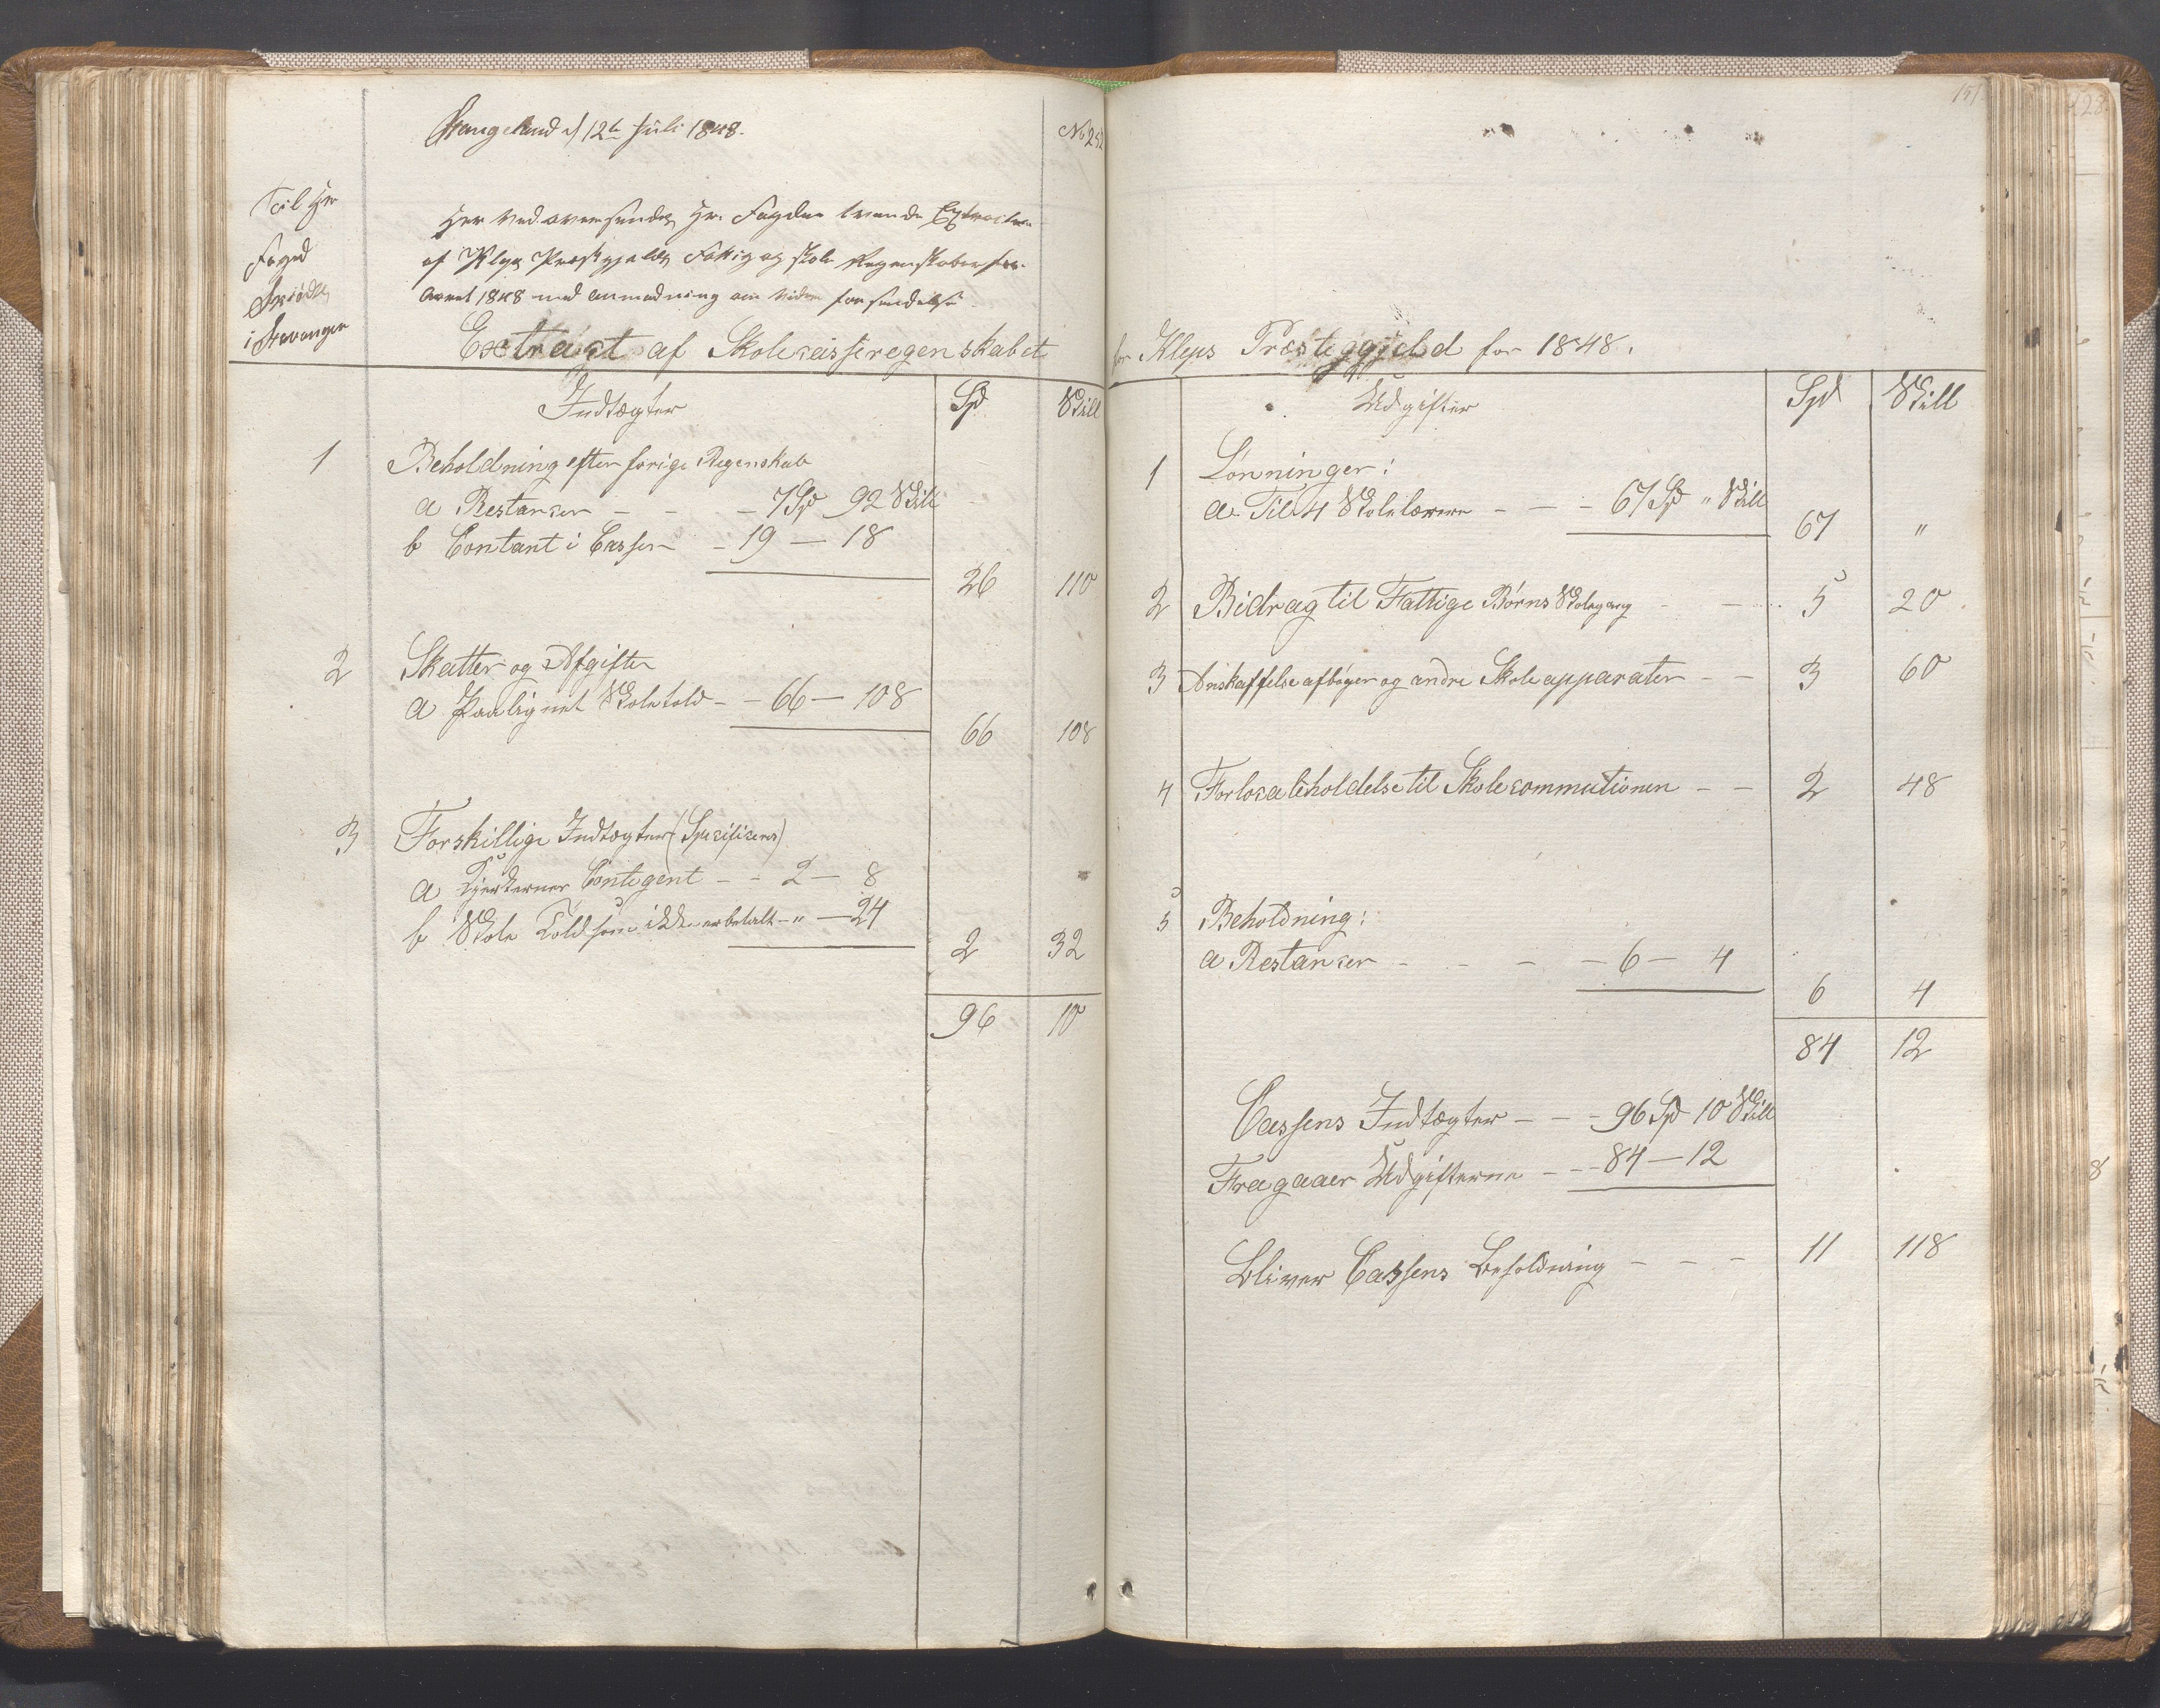 Stangeland d 12te Juli 1848.
Til Hr
Foged
i Stavanger
Her ved oversendes Hr. Fogden tvende Extracter
af Klep Præstgjelds Fattig og Skole Regenskaber for
Aaret 1848 med anmodning om videre forsendelse
Extragt af Skolecasseregenskabet
Indtægter Spd Skill
1 Beholdning efter forige Regenskab
a Restanser - - - 7 Spd 92 Skill
b Contant i Cassen - 19 - 18
26 110
2 Skatter og Afgifter
a Paalignet Skoletold - - 66 - 108
66 108
3 Forskillige Indtægter (Spesifiseres)
a Kjerkernes Contigent - - 2 - 8
b Skole Told som ikke er betalt - " - 24
2 32
96 10
151
for Kleps Præsteggjeld for 1848.
Udgifter Spd Skill
1 Lønninger:
a. Til 4 Skolelærere - - - 67 Spd " Skill
67 "
2 Bidrag til Fattige Børns Skolegang - - 5 20
3 Anskaffelse af bøger og andre Skoleapparater - - 3 60
4 For localeholdelse til Skolecommutionen - - 2 48
5 Beholdning:
a Restanser - - - - 6 - 4
6 4
84 12
Cassens Indtægter - - - 96 Spd 10 Skill
Fragaaer Udgifterne - - - 84 - 12
Bliver Cassens Beholdning - - - 11 118